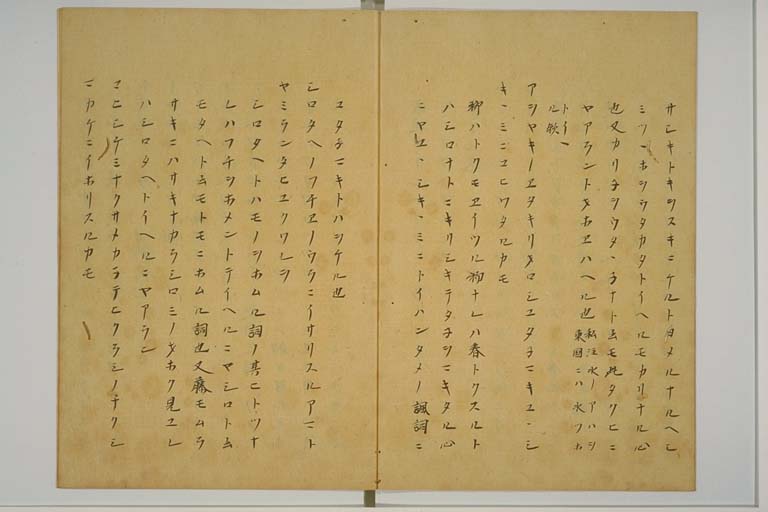 サレキトキシスキニケルトヨメルナルヘシ
ミツヽホシウタカタトイヘルモカリナル心
也又カリナシウタヽナトムモ此タクヒニ
ヤアラントオホエハヘル也 私注水ノアハシ
東国ニハ水フホ
トイヽ
ル歟
アシヤキノユタキリオロシユタナニキユヽシ
キヽミニコヒワタルカモ
柳ハトクモエイツル物ナレハ春トクスルト
ハシロナトニキリシキテタナシニキタル心
ニヤユヽシキヽミニトイハンタメノ諷詞ニ
ユタナニキトハシケル也
シロタヘノフチエノウラニイサリスルアマト
ヤミランタヒユクワレシ
シロタヘトハモノシホムル詞ノ其ヒトツナ
レハフチシホメントテイヘルニヤシロトム
モタヘトムモトモニホムル詞也又藤モムラ
サキニハサキナカラシロミノオホク見ユレ
ハシロタヘトイヘルニヤアラン
コヒシケミナクサメカテヒクラシノナクシ
マカケニイホリスルカモ